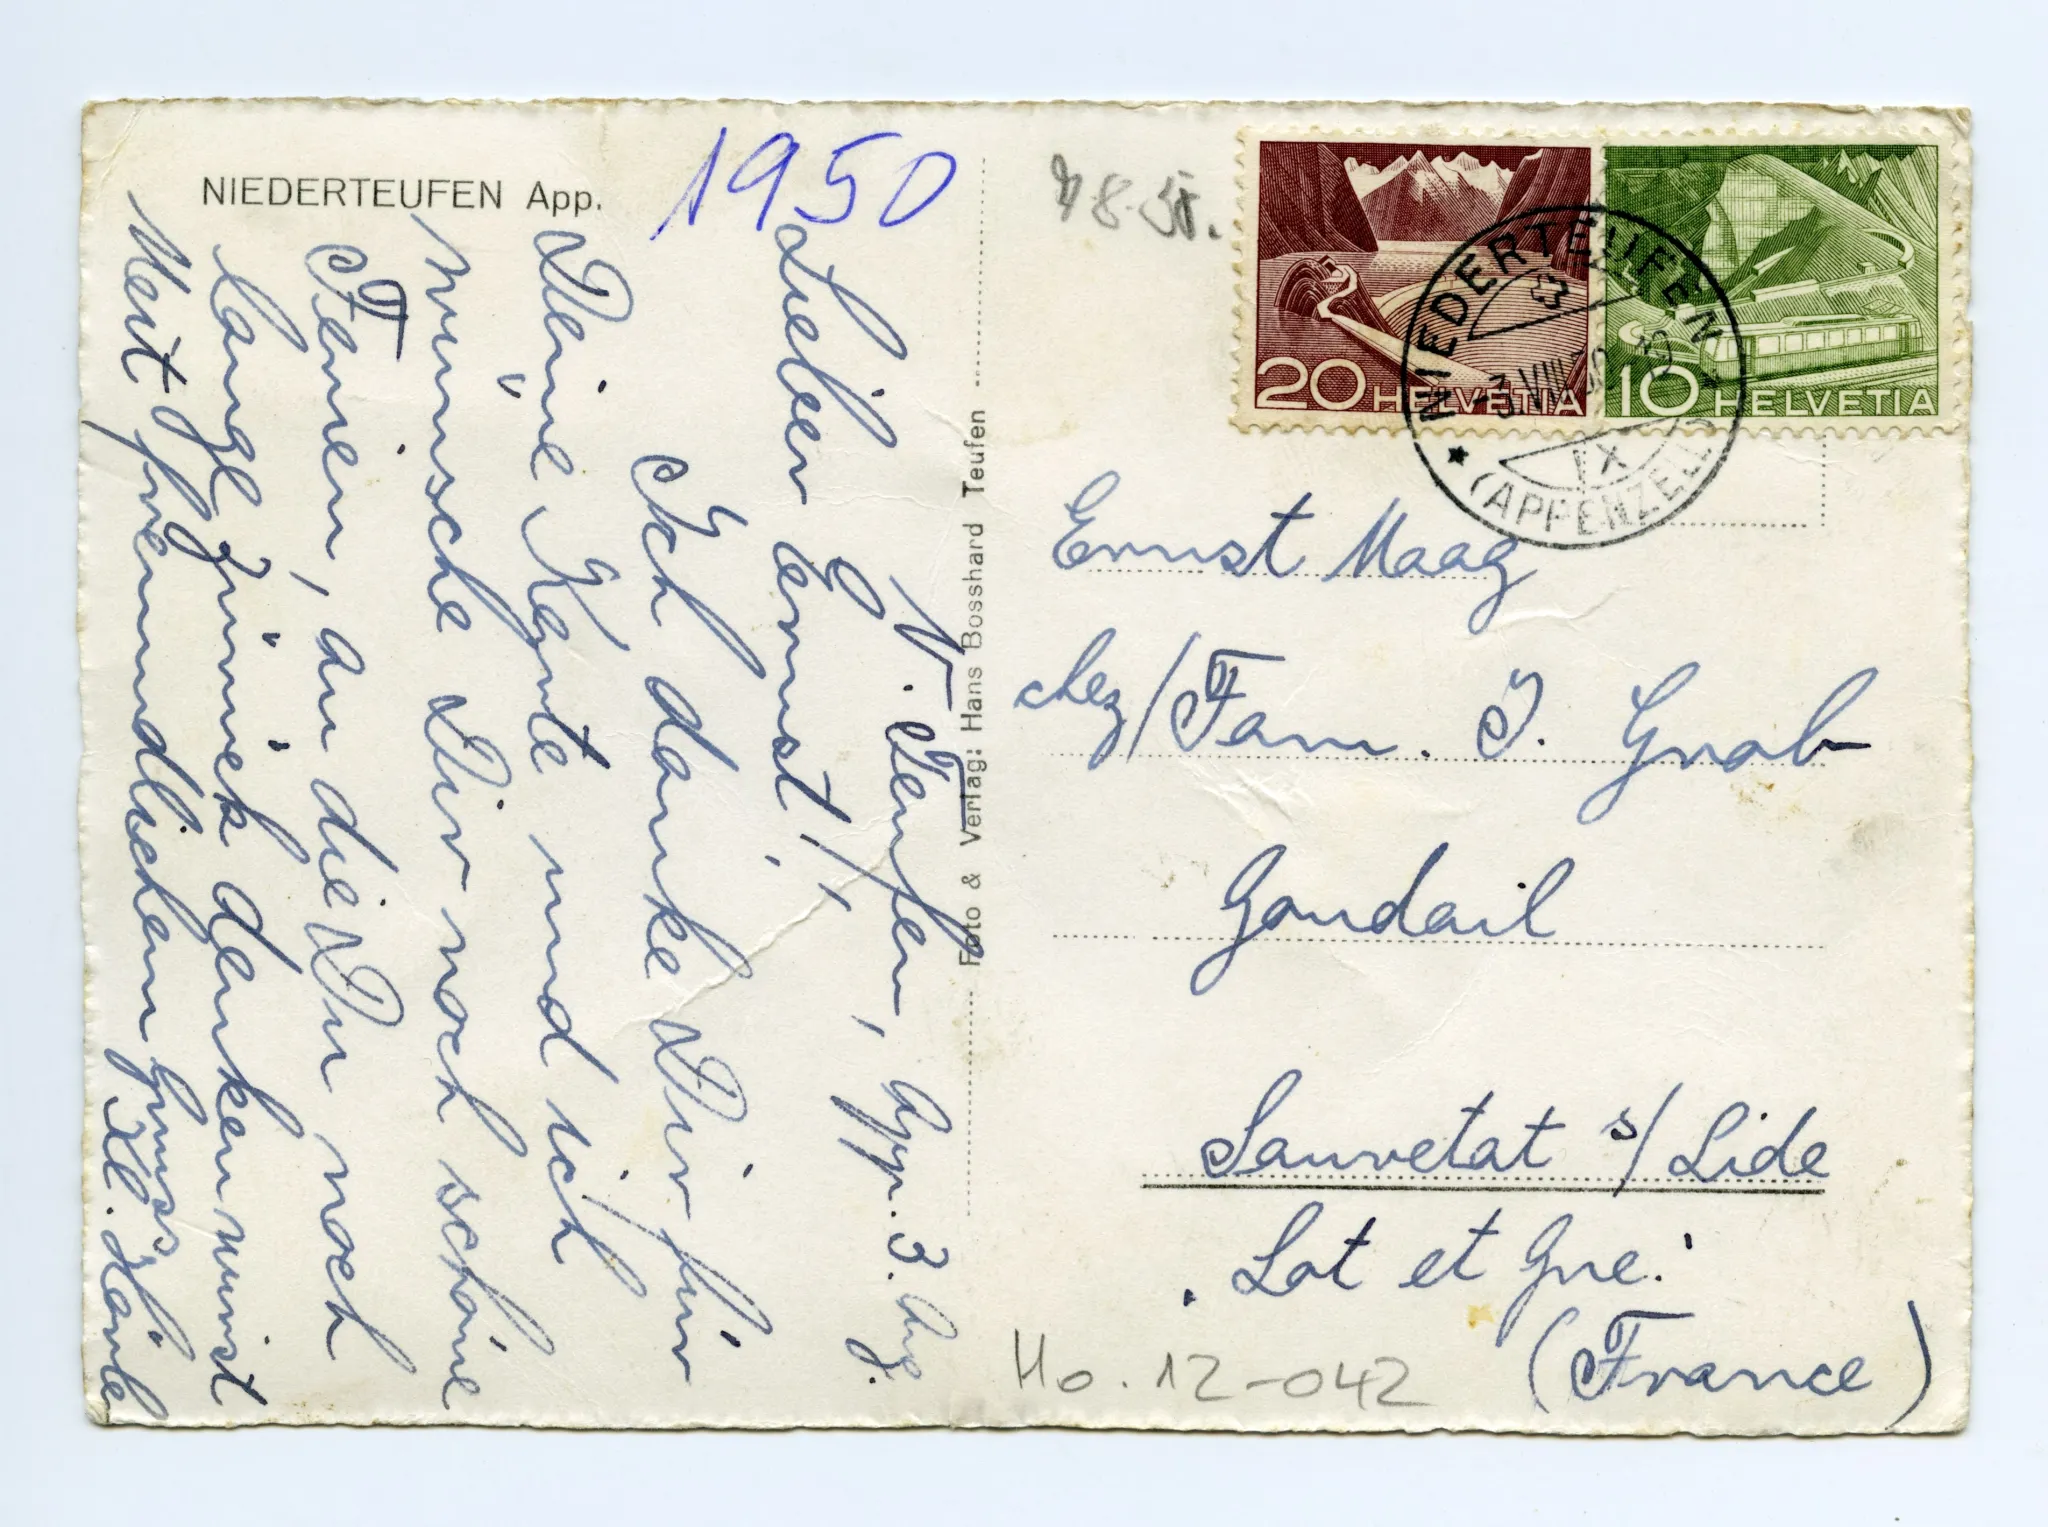 NIEDERTEUFEN App.
1950
N. Teufen, App. 3. Aug.
Lieber Ernst!
Ich danke Dir für
Deine Karte und ich
wünsche Dir noch schöne
Ferien, an die Du noch
lange zurück denken wirst
Mit freundlichem Gruss
Foto & Verlag: Hans Bosshard Teufen
20 HELVETIA
10 HELVETIA
NIEDERTEUFEN
3.VIII.50
(APPENZELL)
Ernst Maag
chez/Fam. J. Grob
Goudail
Sauvetat s/Lide
Lot et Gne.
(France)
Ho. 12-042